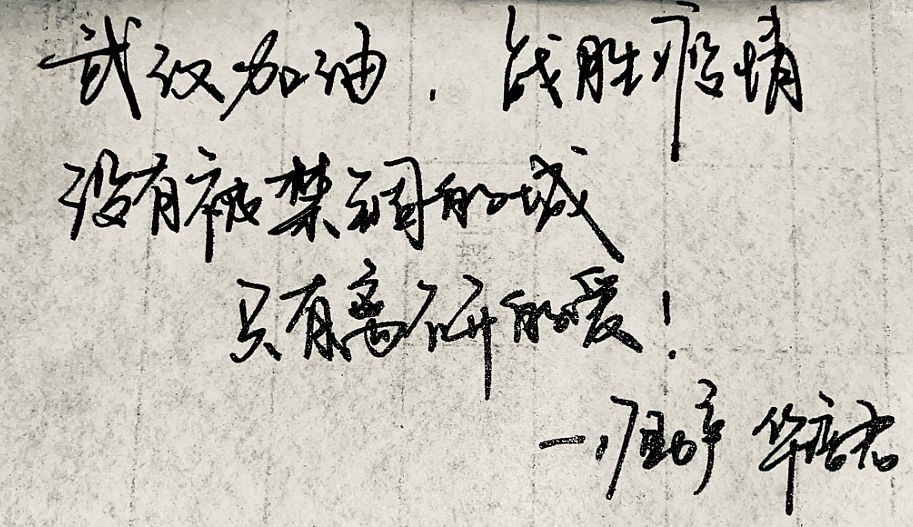 武汉加油，战胜疫情
没有被禁锢的城
只有离不开的爱！
— 华